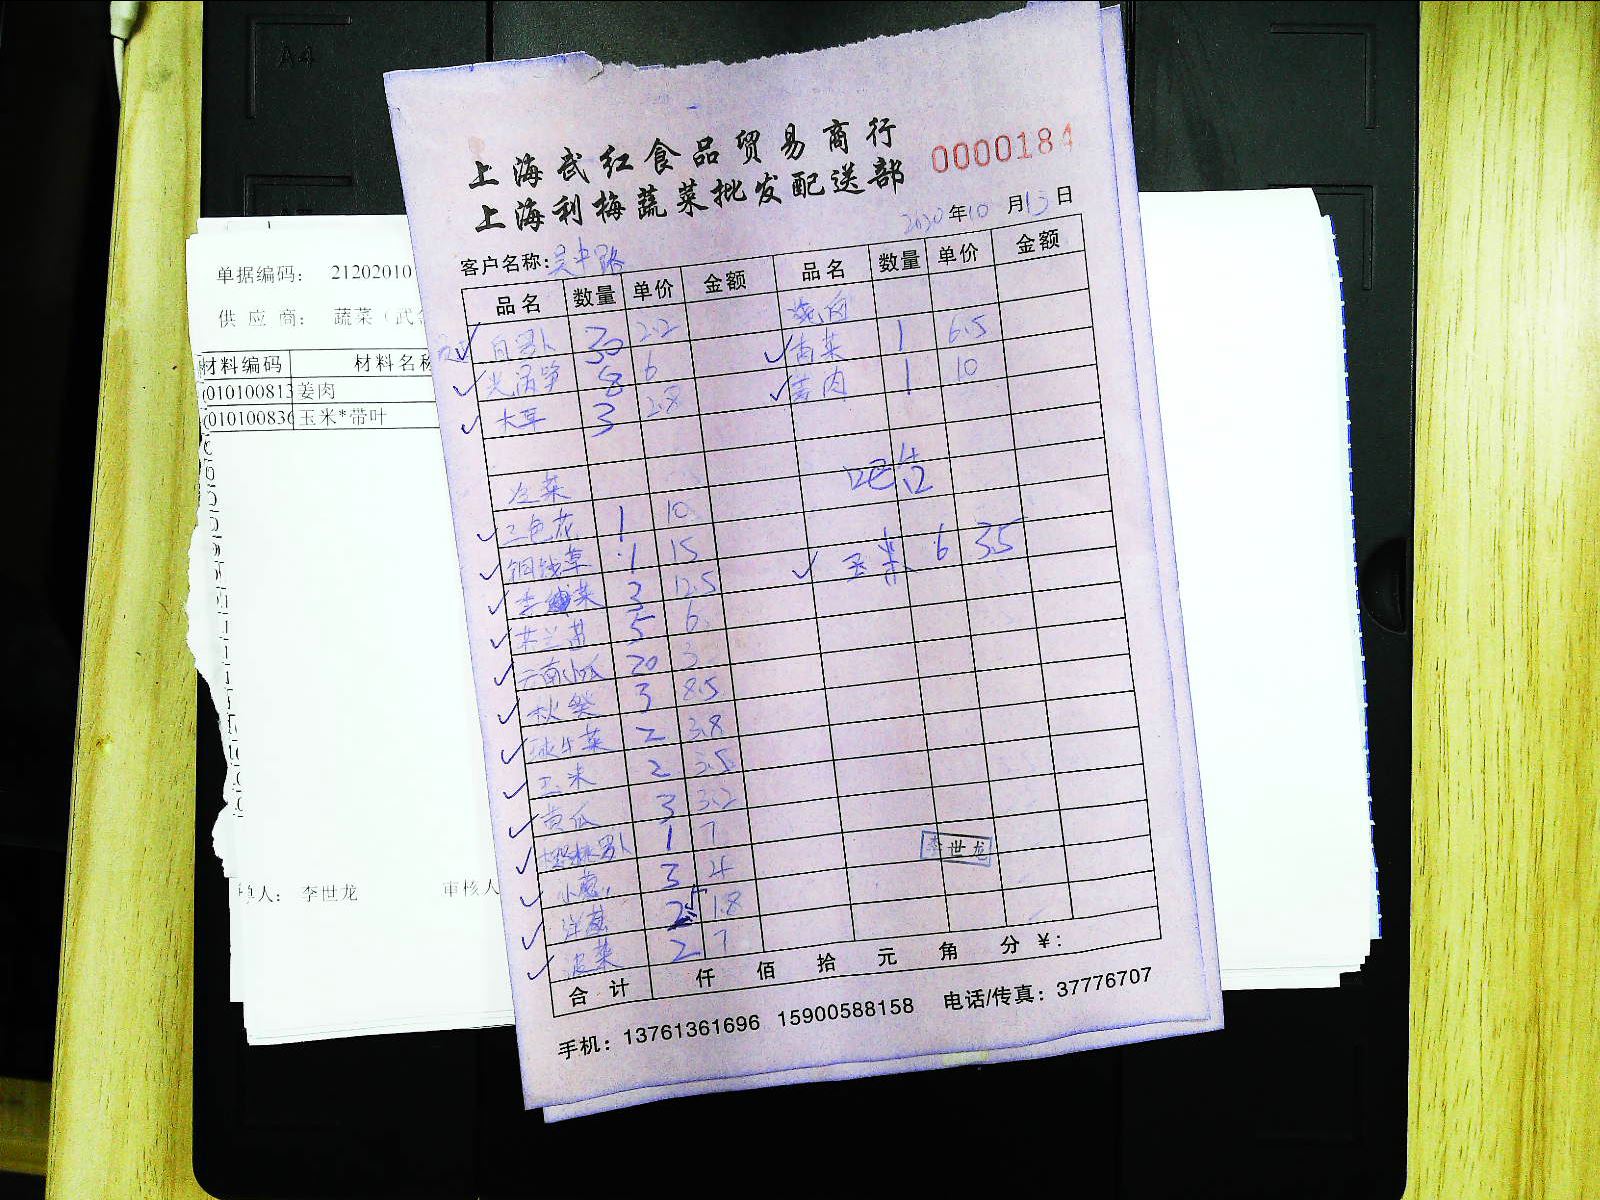 A4
上海武红食品贸易商行
上海利梅蔬菜批发配送部
0000184
2020年10月13日
客户名称:吴中路
品名 数量 单价 金额 品名 数量 单价 金额
白萝卜 30 2.2 烧肉
光莴笋 8 6 1 6.5
木耳 3 2.8 姜肉 1 10
冷菜 吧台
三色花 1 10
铜钱草 1 15 玉米 6 3.5
3 12.5
5 6
云南小瓜 20 3
秋葵 3 8.5
球生菜 2 3.8
玉米 2 3.5
黄瓜 3 3.2
樱桃萝卜 1 7
小葱 3 4
洋葱 1.8
菠菜 2 7
李世龙
合计 仟 佰 拾 元 角 分 ¥:
手机: 13761361696 15900588158 电话/传真: 37776707
单据编码: 21202010
供应商: 蔬菜(武
材料编码 材料名称
010100813 姜肉
010100836 玉米*带叶
单人: 李世龙 审核人